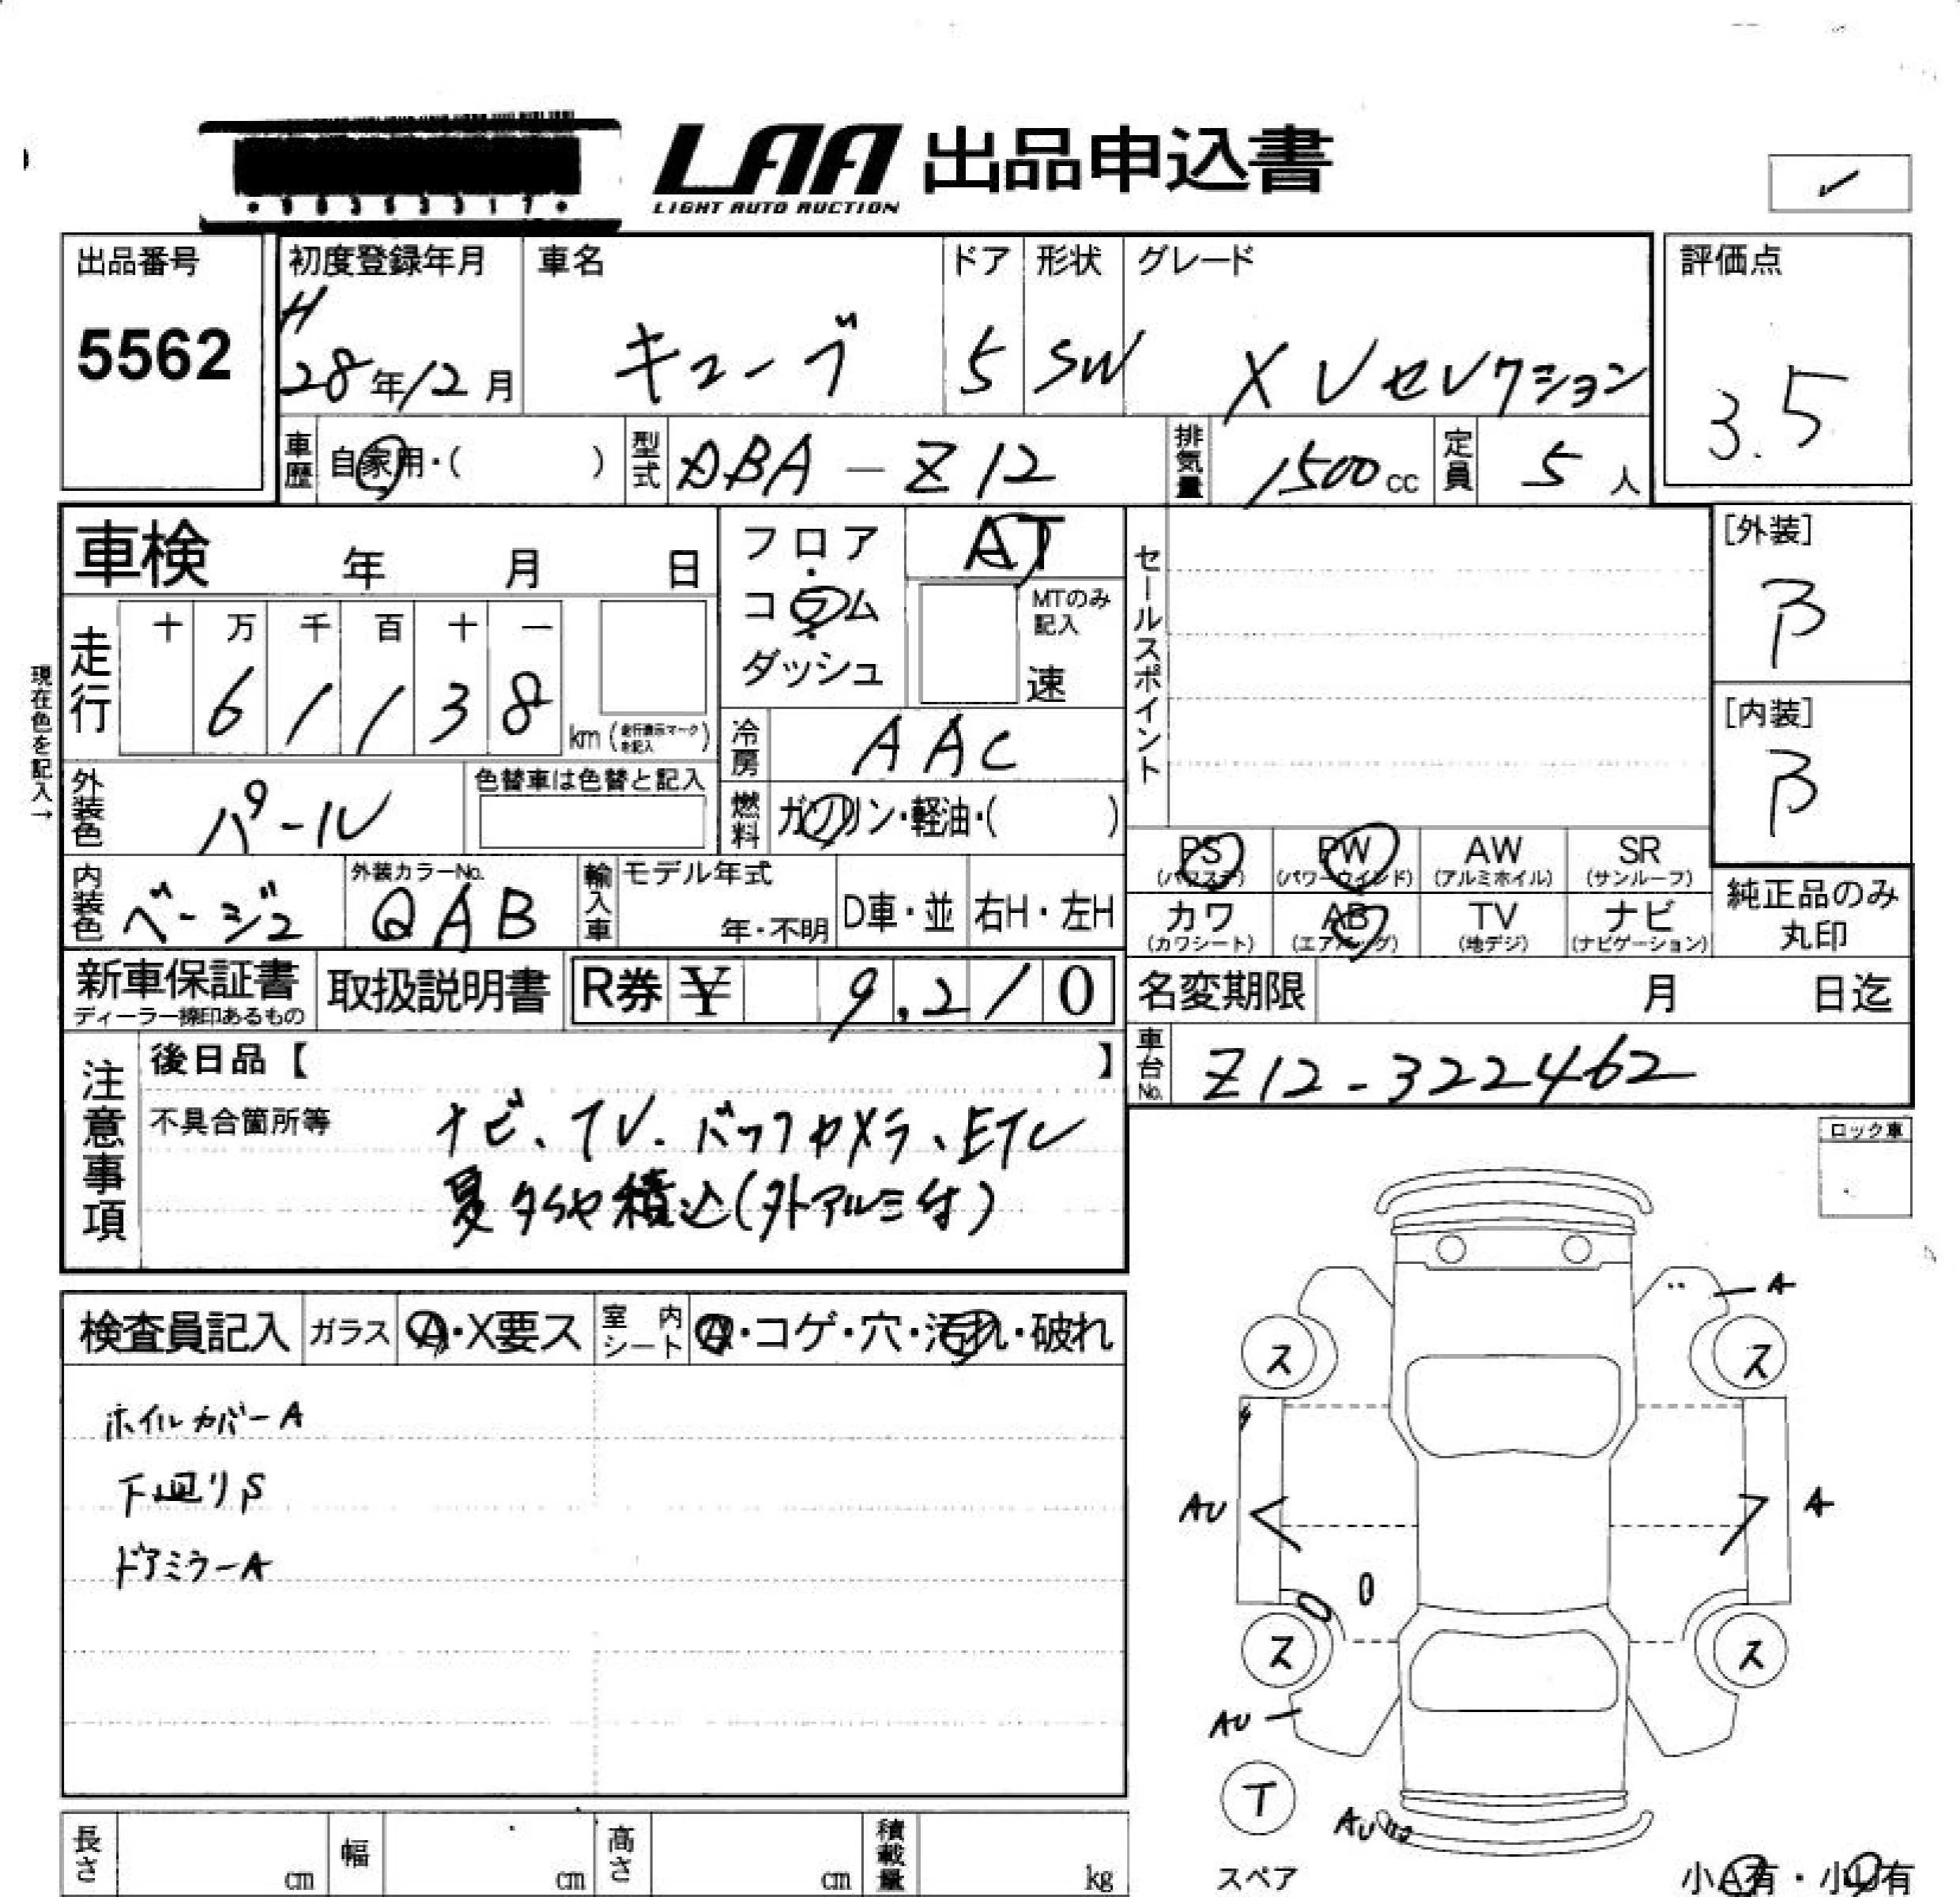 LAA 出品申込書
LIGHT AUTO AUCTION
✓
出品番号
5562
初度登録年月
H
28年12月
車名
キューブ
ドア
5
形状
SW
グレード
X Vセレクション
評価点
3.5
車歴 自家用・( )
型式 DBA-Z12
排気量 1500cc
定員 5人
車検 年 月 日
フロア・コラム・ダッシュ
AT
MTのみ記入
速
セールスポイント
[外装]
B
[内装]
B
現在色を記入→
走行
十 万 千 百 十 一
6 1 1 3 8
km (走行表示マークを記入)
冷房 AAC
外装色 パール
色替車は色替と記入
燃料 ガソリン・軽油・( )
PS (パワステ)
PW (パワーウインド)
AW (アルミホイル)
SR (サンルーフ)
カワ (カワシート)
AB (エアバッグ)
TV (地デジ)
ナビ (ナビゲーション)
純正品のみ丸印
内装色 ベージュ
外装カラーNo. QAB
輸入車 モデル年式
年・不明
D車・並 右H・左H
新車保証書
ディーラー捺印あるもの
取扱説明書
R券 ¥ 9,210
名変期限 月 日迄
車台No. Z12-322462
注意事項
後日品【 】
不具合箇所等
ナビ、TV、バックカメラ、ETC
夏タイヤ積込(外アルミ付)
ロック車
検査員記入 ガラス A・X要ス 室内シート A・コゲ・穴・汚れ・破れ
ホイルカバーA
下廻りS
ドアミラーA
A
ス ス
AU A
ス ス
AU
T
スペア
AU
小A有・小U有
長さ cm
幅 cm
高さ cm
積載量 kg